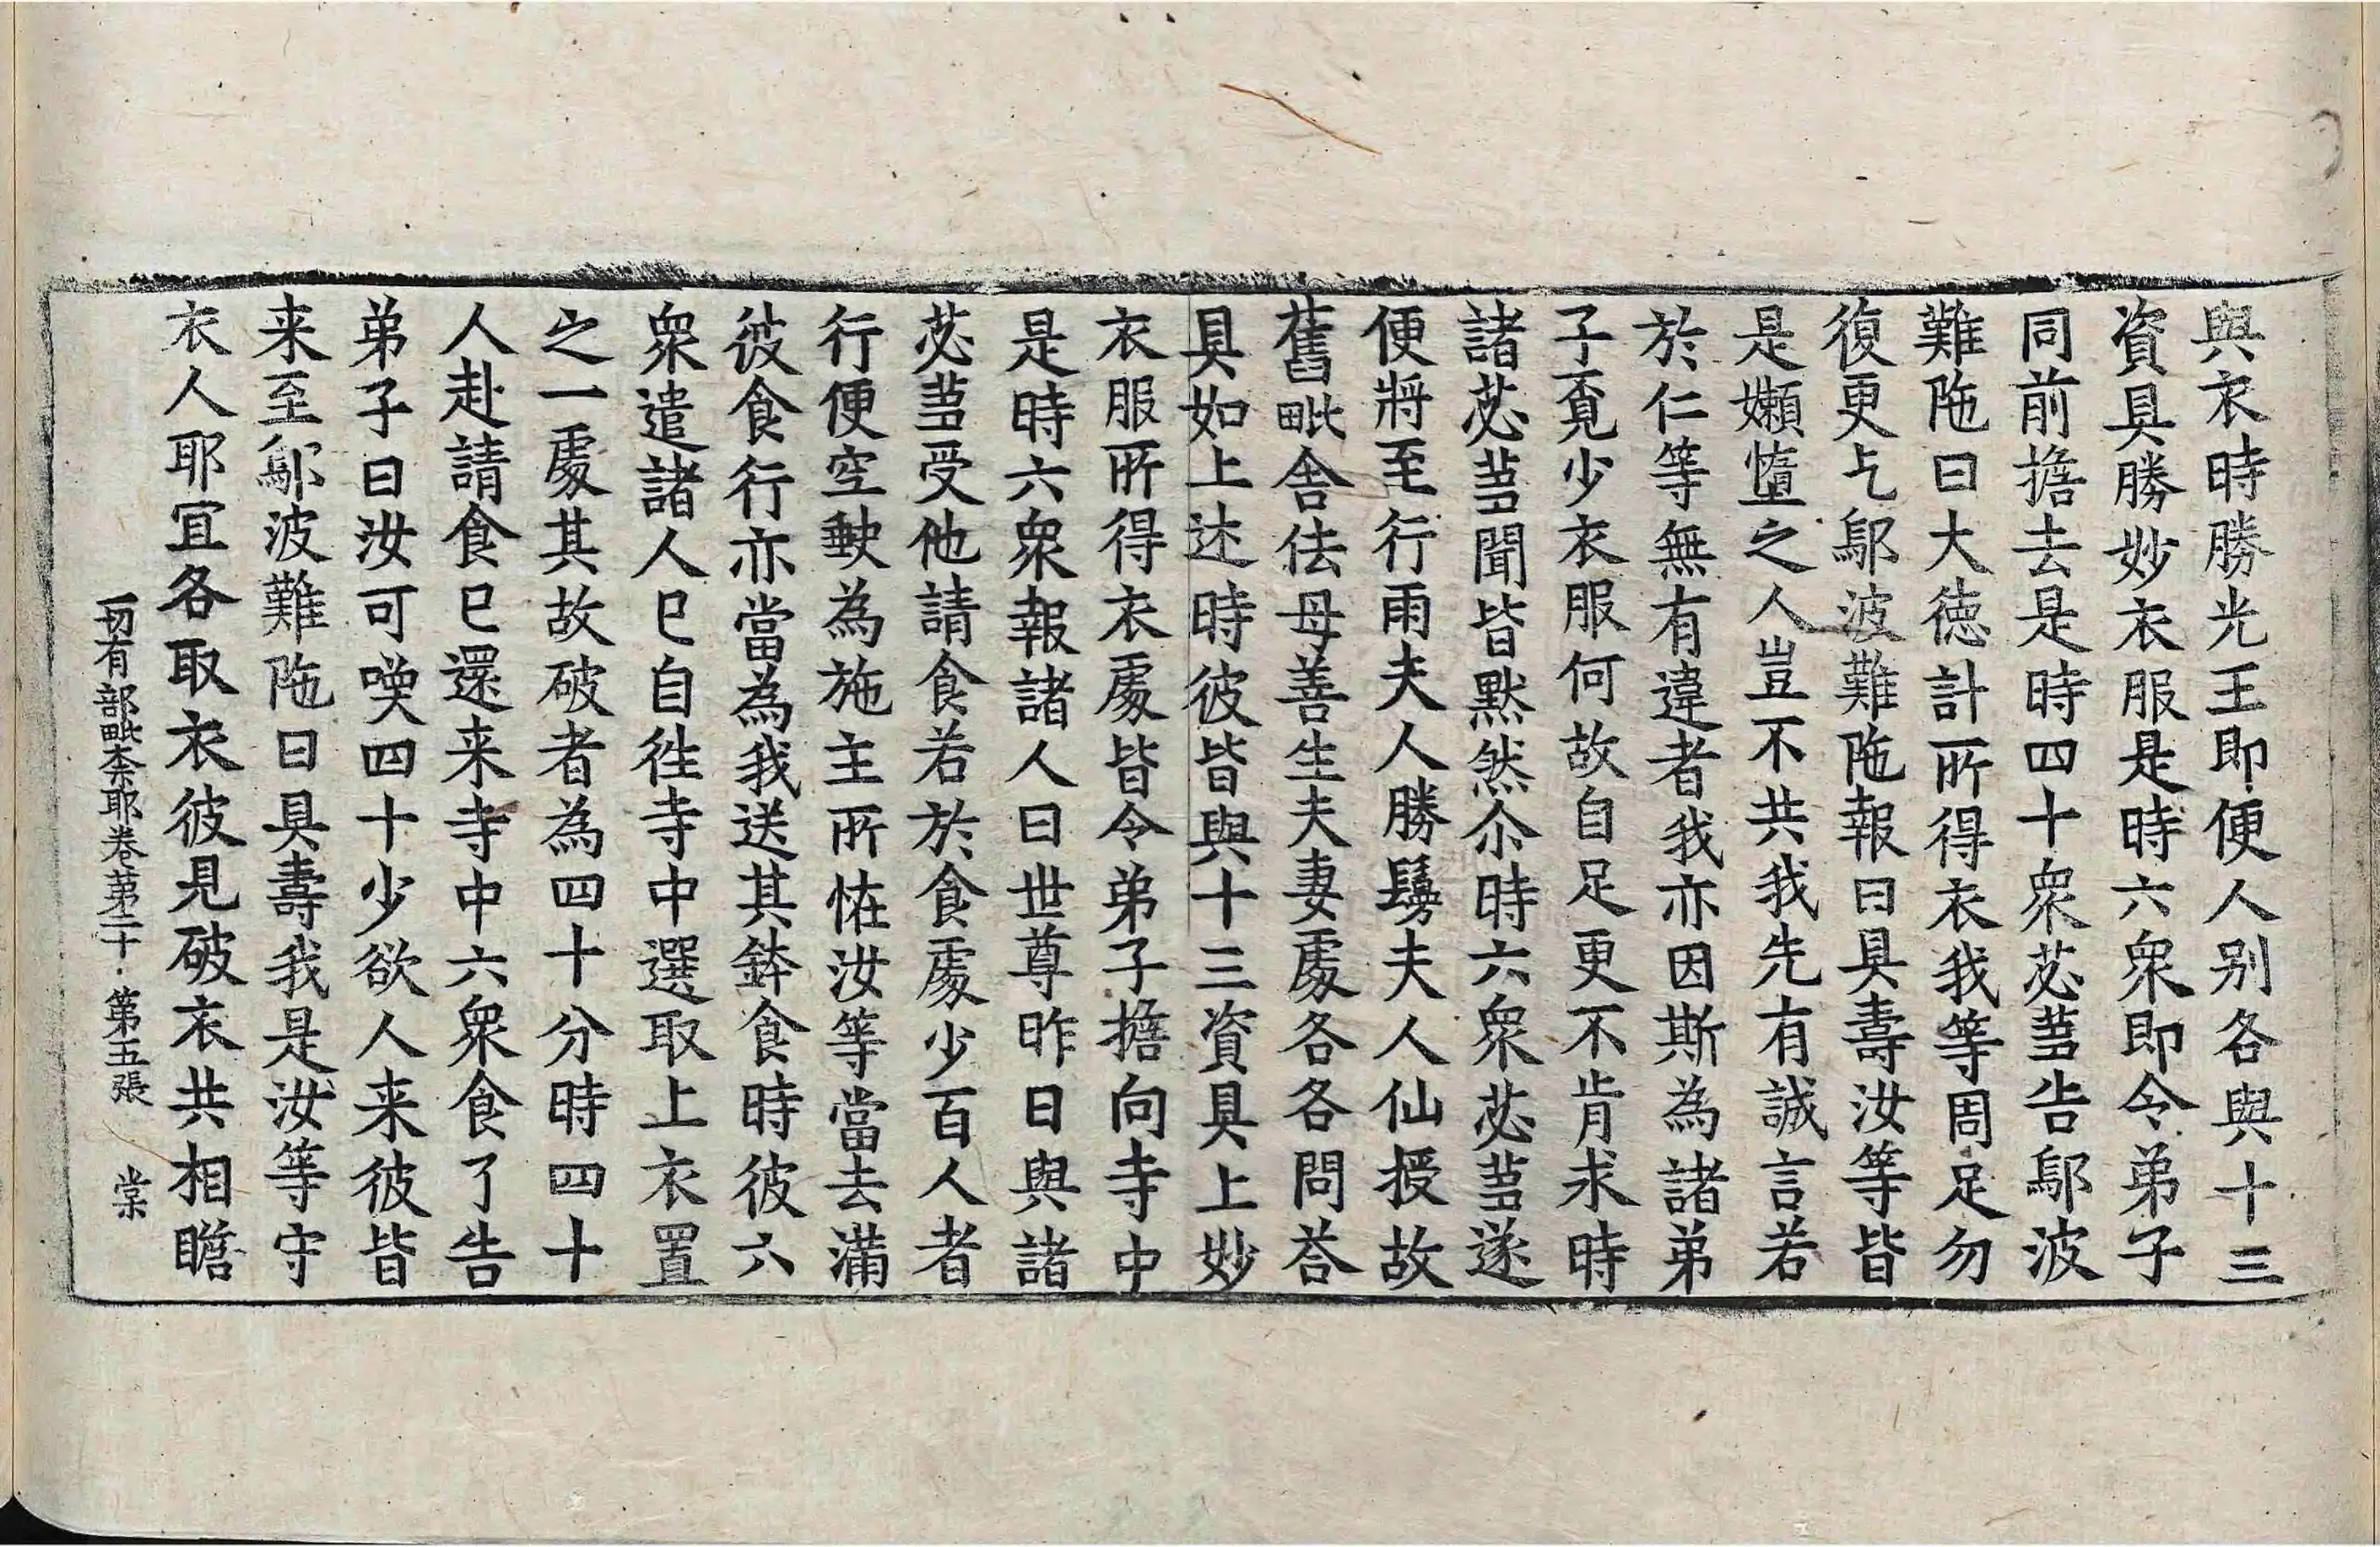 與衣時勝光王即便人別各與十三
資具勝妙衣服是時六衆即令弟子
同前擔去是時四十衆苾蒭告鄔波
難陁曰大徳計所得衣我等周足勿
復更乞鄔波難陁報曰具壽汝等皆
是嬾憜之人豈不共我先有誠言若
於仁等無有違者我亦因斯為諸弟
子覔少衣服何故自足更不肯求時
諸苾蒭聞皆默然尒時六衆苾蒭遂
便將至行雨夫人勝鬘夫人仙授故
舊毗舍佉母善生夫妻處各各問荅
具如上述時彼皆與十三資具上妙
衣服所得衣處皆令弟子擔向寺中
是時六衆報諸人曰世尊昨日與諸
苾蒭受他請食若於食處少百人者
行便空缺為施主所恠汝等當去滿
彼食行亦當為我送其鉢食時彼六
衆遣諸人巳自往寺中選取上衣置
之一處其故破者為四十分時四十
人赴請食巳還来寺中六衆食了告
弟子曰汝可喚四十少欲人来彼皆
来至鄔波難陁曰具壽我是汝等守
衣人耶冝各取衣彼見破衣共相瞻
一切有部毗柰耶卷第二十 第五張 棠